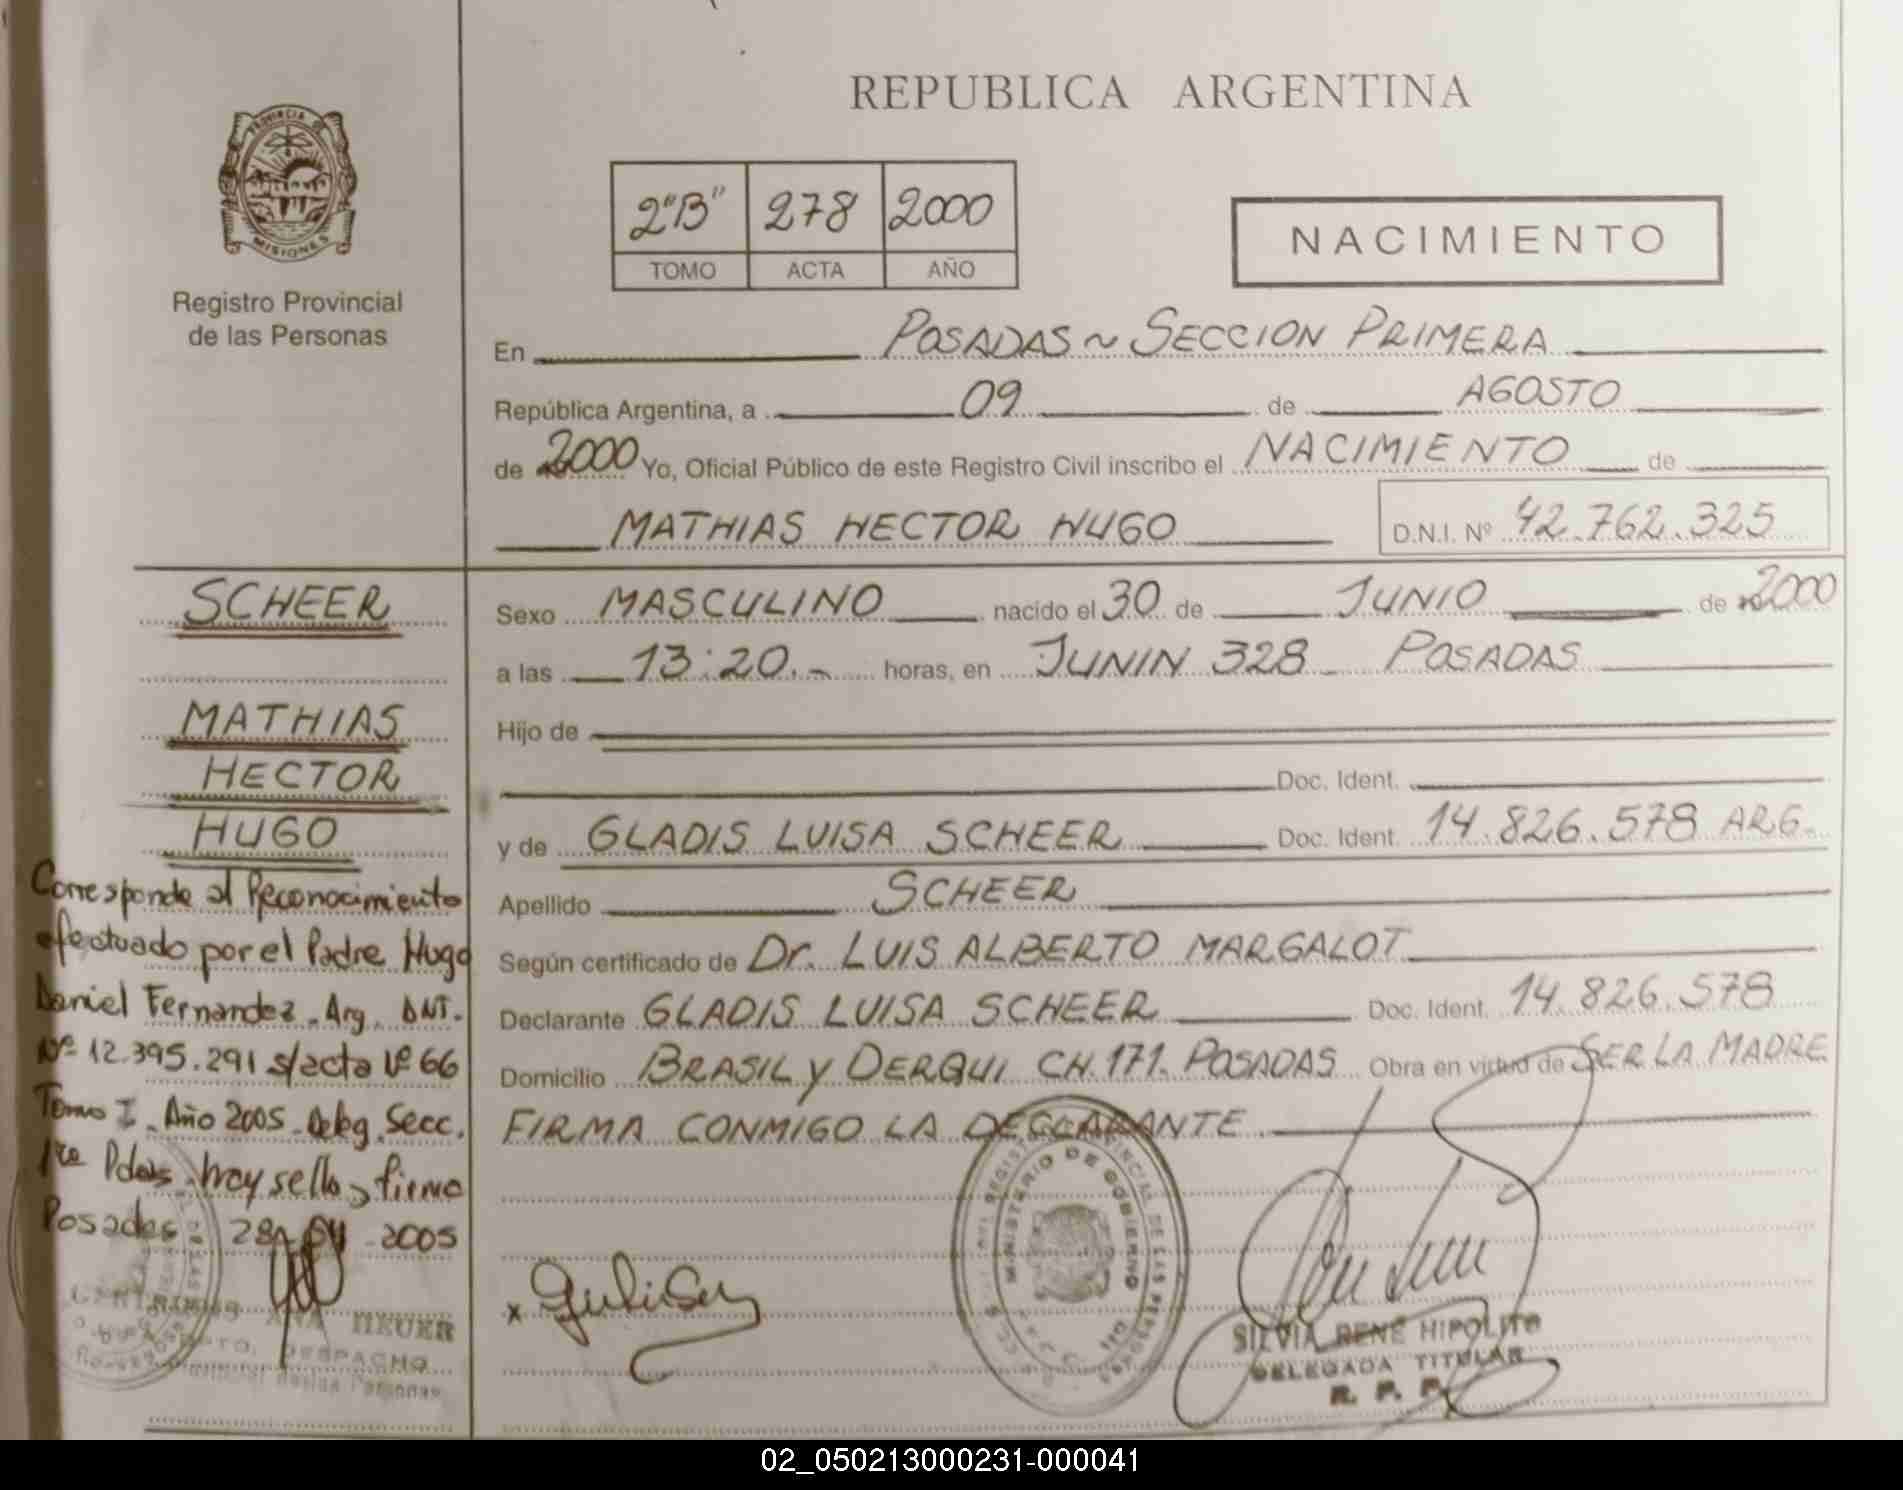 REPUBLICA ARGENTINA
PROVINCIA DE
MISIONES
Registro Provincial
de las Personas
2"B" 278 2000
TOMO ACTA AÑO
NACIMIENTO
En POSADAS ~ SECCION PRIMERA
República Argentina, a 09 de AGOSTO
de 2000 Yo, Oficial Público de este Registro Civil inscribo el NACIMIENTO de
MATHIAS HECTOR HUGO D.N.I. Nº 42.762.325
Sexo MASCULINO nacido el 30 de JUNIO de 2000
a las 13:20.- horas, en JUNIN 328 POSADAS
Hijo de
Doc. Ident.
y de GLADIS LUISA SCHEER Doc. Ident. 14.826.578 ARG.
Apellido SCHEER
Según certificado de Dr. LUIS ALBERTO MARGALOT
Declarante GLADIS LUISA SCHEER Doc. Ident. 14.826.578
Domicilio BRASIL Y DERQUI CH.171. POSADAS Obra en virtud de SER LA MADRE
FIRMA CONMIGO LA DECLARANTE
SCHEER
MATHIAS
HECTOR
HUGO
Corresponde al Reconocimiento
efectuado por el Padre Hugo
Daniel Fernandez. Arg. DNI.
Nº 12.395.291 s/acta Nº 66
Tomo I. Año 2005. Deleg. Secc.
1ra Pdas. hay sello y firma
Posadas 2005
ANA HEUER
DPTO. DESPACHO
MINISTERIO DE GOBIERNO
SILVIA RENÉ HIPOLITO
DELEGADA TITULAR
R. P. P.
02_050213000231-000041